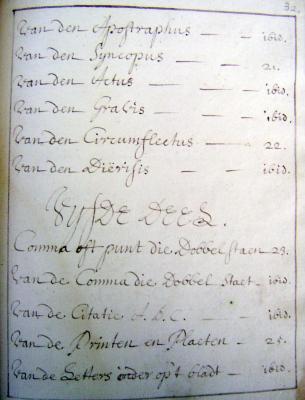 32.
Van den Apostraphus — — ibid.
Van den Syncopus — — 21.
Van den Actus — — ibid.
Van den Gravis — — ibid.
Van den Circumflectus — 22.
Van den Diërisis — ibid.
Vyfde Deel.
Comma oft punt die Dobbel staen 23.
Van de Comma die Dobbel staet - ibid.
Van de Citatie A. b. C. — ibid.
Van de Printen en Plaeten - 25.
Van de Letters onder op't bladt - ibid.